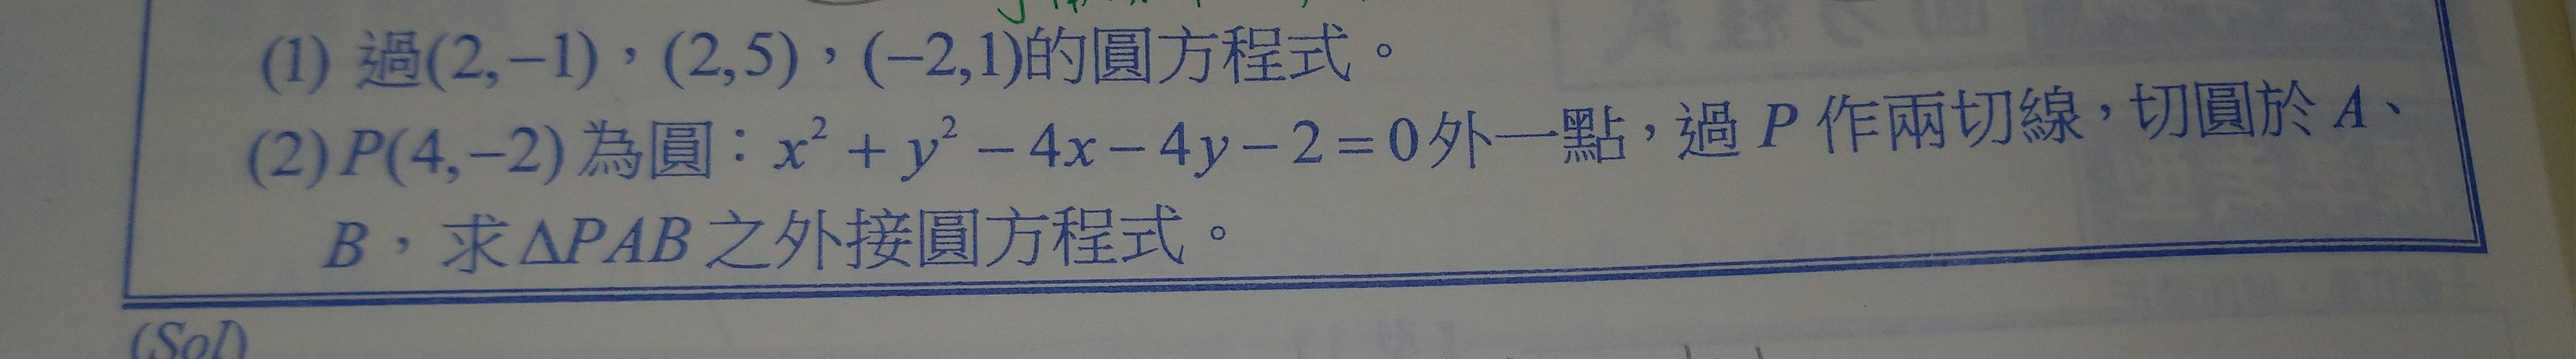 (1) 過(2,−1),(2,5),(−2,1)的圓方程式。
(2) P(4,−2)為圓:x² + y² − 4x − 4y − 2 = 0外一點,過 P 作兩切線,切圓於 A、
B,求ΔPAB之外接圓方程式。
(Sol)